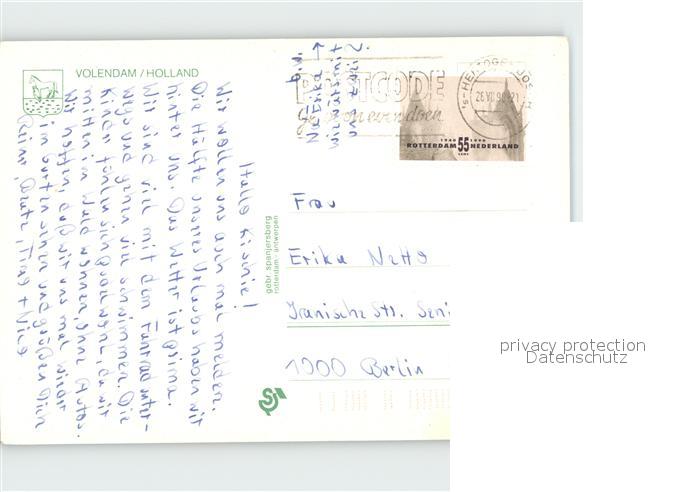 VOLENDAM / HOLLAND
Hallo Kirsine!
Wir wollen uns auch mal melden.
Die Hälfte unseres Urlaubs haben wir
hinter uns. Das Wetter ist prima.
Wir sind viel mit dem Fahrrad unter-
wegs und gehen viel schwimmen. Die
Kinder fühlen sich sauwohl, da wir
mitten im Wald wohnen, ohne Autos.
Wir hoffen, daß wir uns mal wieder
im Garten sehen und grüßen Dich
Reiner, Beate, Tino + Nico
b.w. →
Na Erika
wir
uns zwei?
gebr. spanjersberg
rotterdam - antwerpen
POSTCODE
26.VII.90
1940 1990
ROTTERDAM 55 NEDERLAND
CENT
Frau
Erika Netto
Iranische Str.
1000 Berlin
privacy protection
Datenschutz